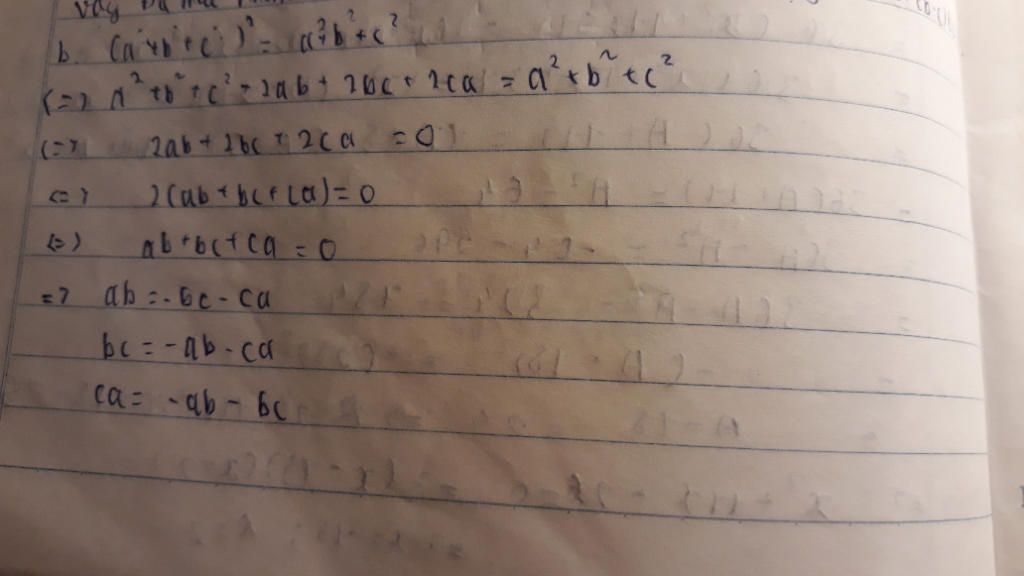 vậy
b. (a+b+c)² = a²+b²+c²
<=> a²+b²+c²+2ab+2bc+2ca = a²+b²+c²
<=> 2ab+2bc+2ca = 0
<=> 2(ab+bc+ca)=0
<=> ab+bc+ca = 0
=> ab = -bc-ca
bc = -ab-ca
ca = -ab-bc